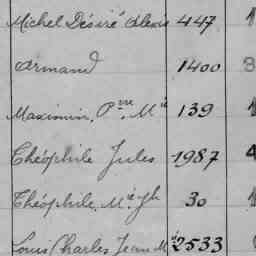 Michel Désiré Alexis 447
Armand 1400
Maximin, Pre Mie 139
Théophile Jules 1987 4
Théophile, Mie Jh 30
Louis Charles Jean Mie 2533